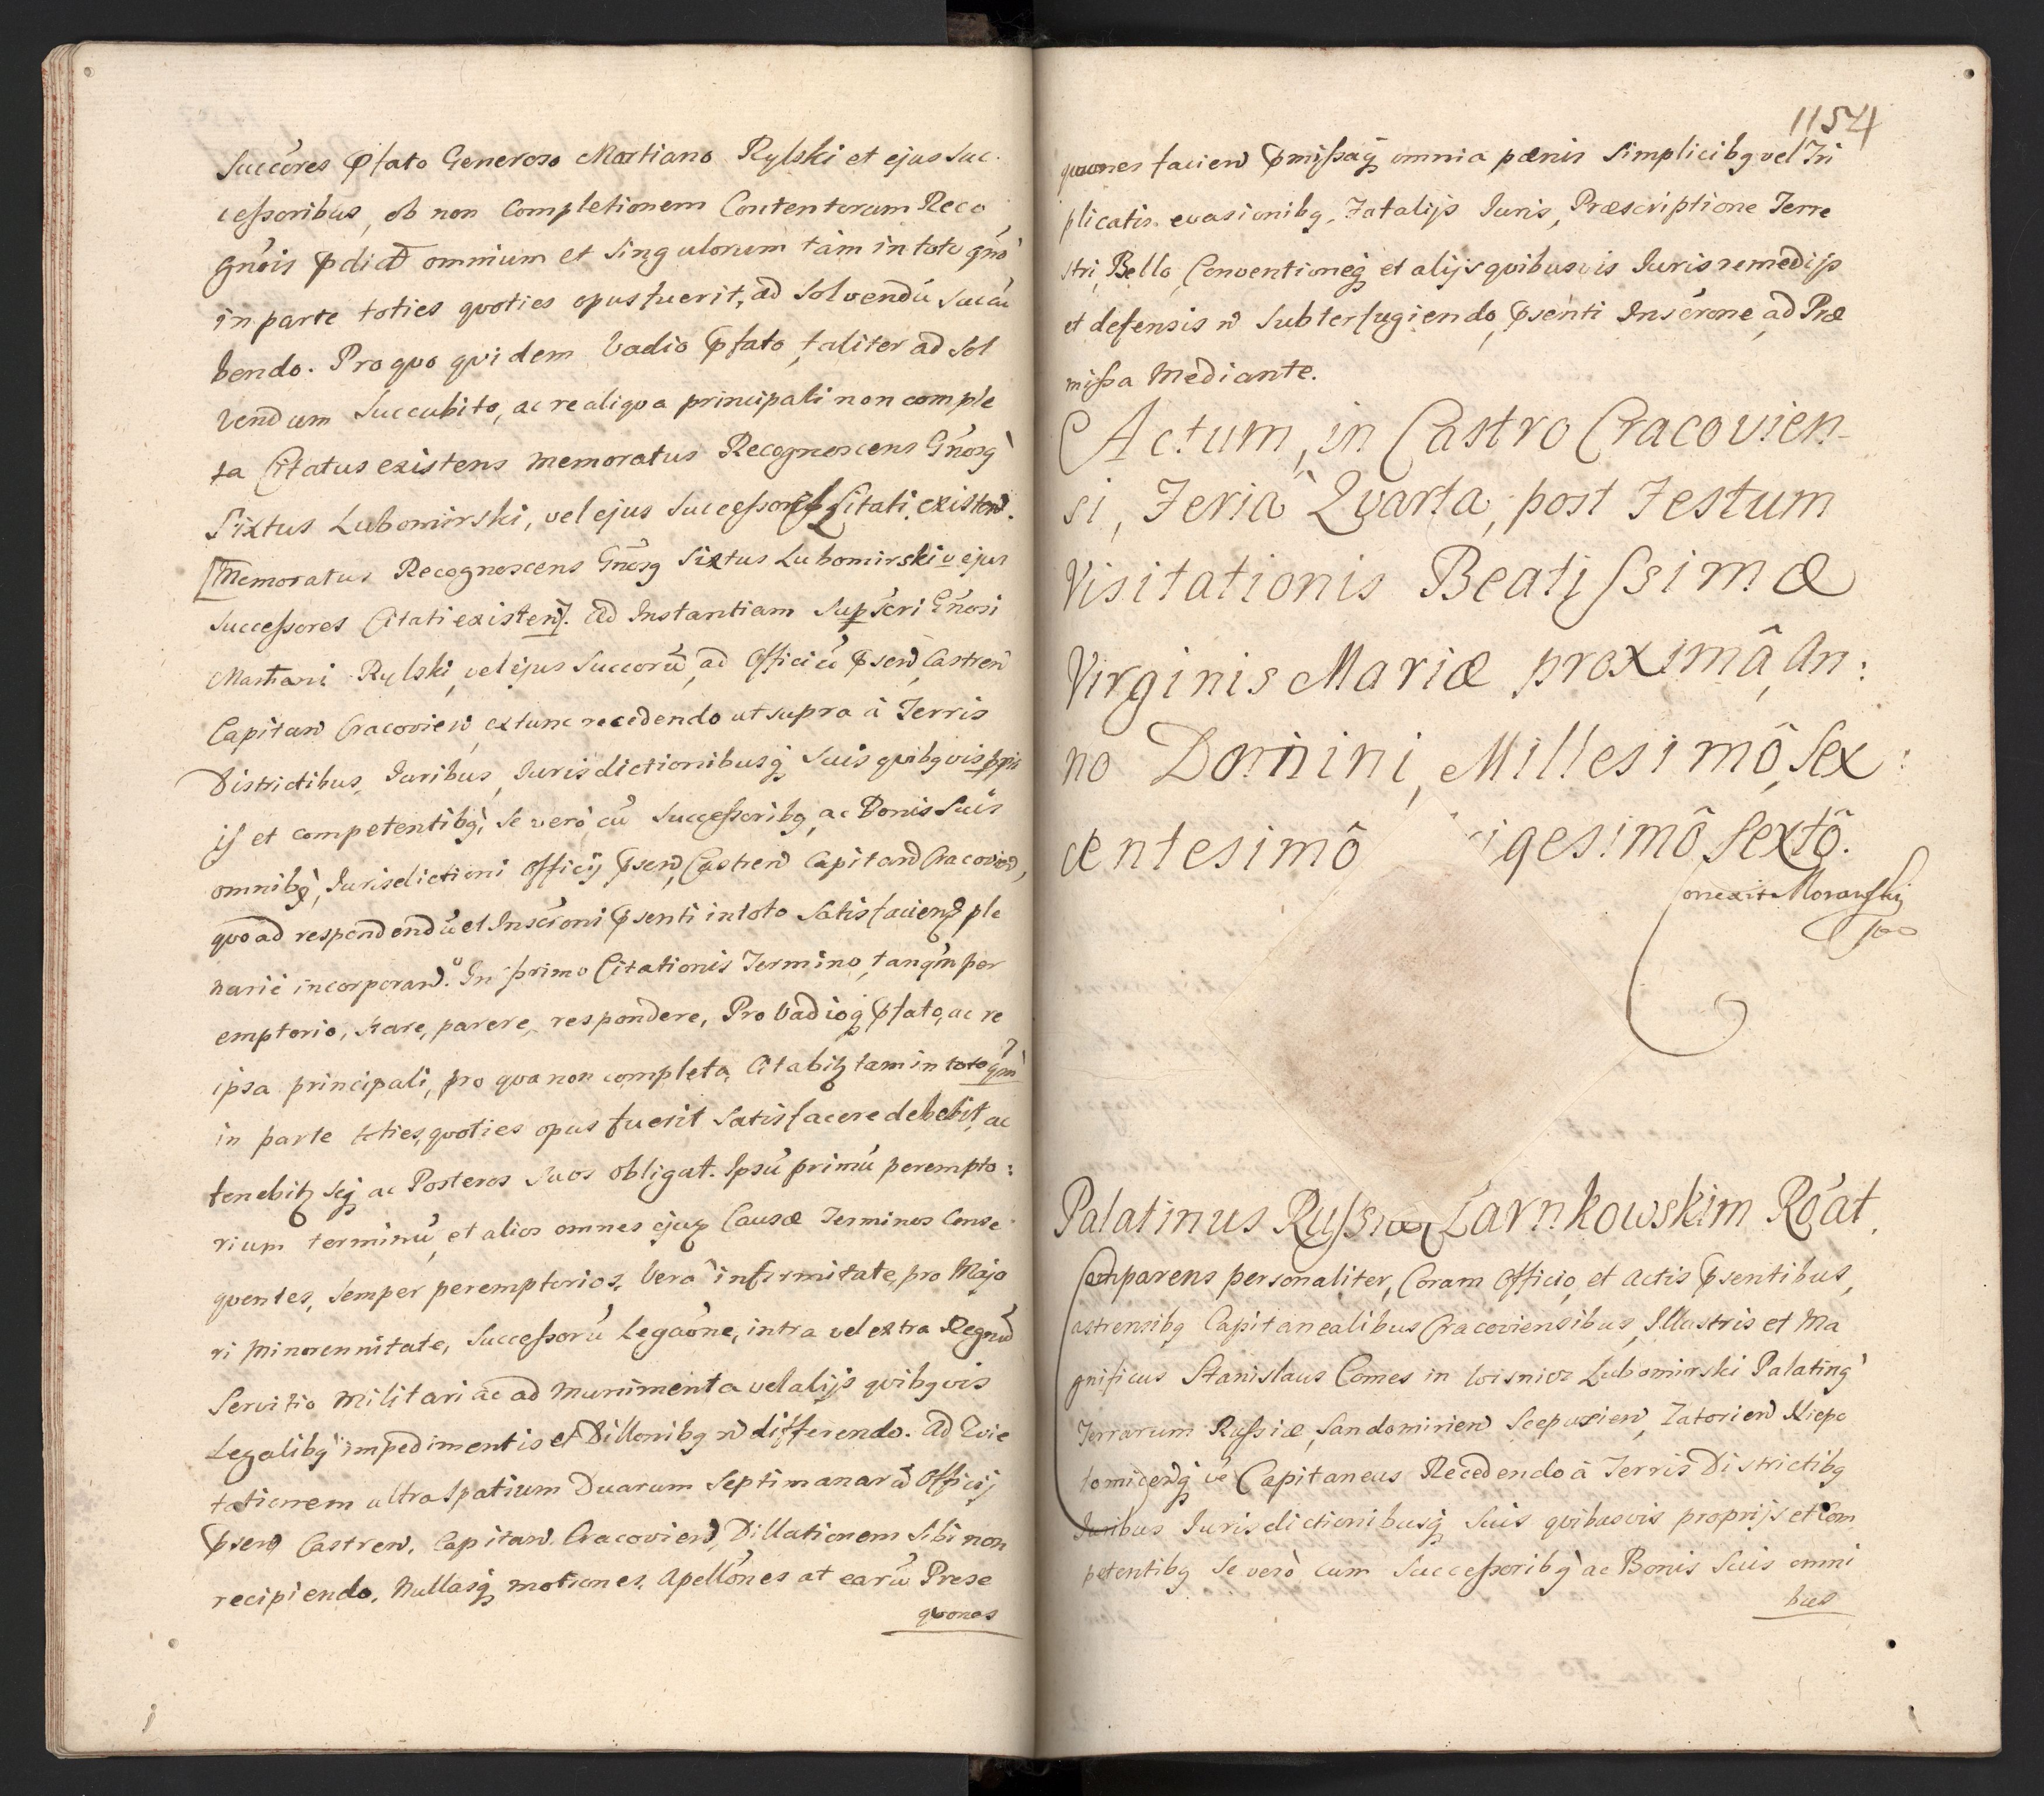 Succēres p̄fato Generoso Martiano Rylski et ejus Suc
ceßoribus, ob non Completionem Contentorum Reco
gn̄ois p̄dict omnium et Singulorum tàm in toto qm̄
in parte toties qvoties opus fuerit, ad Solvendū Succu
bendo. Pro qvo qvidem Vadio p̄fato, taliter ad Sol
vendum Succubito, ac re aliqva principali non comple
ta Citatus existens memoratus Recognoscens Gn̄osq
Sixtus Lubomirski, vel ejus Succeßores Citati existen.
Memoratus Recognoscens Gn̄osq Sixtus Lubomirski v ejus
Succeßores Citati existen. Ad Instantiam Sup Scri Gn̄osi
Martiani Rylski, vel ejus Succorū, ad Officiū p̄sen, Castren
Capitan Cracovien, extunc recedendo ut supra à Terris
Districtibus, Iuribus, Iurisdictionibusq Suis qvibqvis ppri
is et competentibq, Se verò cū Succeßoribq, ac Bonis Suis
omnibq, Iurisdictioni Officij p̄sen, Castren Capitan Cracovien,
qvo ad respondendū et Inscr̄oni p̄senti in toto Satisfacien ple
narie incorporan. In primo Citationis Termino, tanqm̄ per
emptorio, stare, parere, respondere, Pro Vadioq p̄fato, ac re
ipsa principali, pro qva non completa, Citabit tam in toto qm̄
in parte toties, qvoties opus fuerit Satisfacere debebit, ac
tenebit Seq ac Posteros Suos obligat. Ipsū primū perempto:
rium terminū, et alios omnes ejus Causæ Terminos Conse
qventes, Semper peremptorios, Vera infirmitate, pro Majo
ri Minorennitate, Succeßorū Legaōne, intra vel extra Regnū
Servitio Militari ac ad Munimenta vel alijs qvibqvis
Legalibq impedimentis et Dillonibq n differendo. Ad Evic
tationem ultra Spatium Duarum Septimanarū Officij
p̄sen Castren. Capitan. Cracovien, Dillationem Sibi non
recipiendo. Nullasq motiones, Apellōnes at earū Prose
qvones
1154
qvones facien p̄mißaq omnia pænis Simplicibq vel Tri
plicatis. evasionibq, Fatalijs Iuris, Præscriptione Terre
stri, Bello, Conventioneq et alijs qvibusvis Iuris remedijs
et defensis n Subterfugiendo, p̄senti Inscr̄one, ad Præ
mißa Mediante.
Actum, in Castro Cracovien-
si, Feriâ Qvarta, post Festum
Visitationis Beatissimæ
Virginis Mariæ proximâ, An:
no Domini, Millesimô Sex:
centesimô igesimô Sextô.
Correxit Morawski
Palatinus Russiæ Czarnkowskim Rōat.
Comparens personaliter, Coram Officio, et Actis p̄sentibus,
Castrensibq Capitanealibus Cracoviensibus, Illustris et Ma
gnificus Stanislaus Comes in Wisnicz Lubomirski Palatinq
Terrarum Rußiæ, Sandomirien Scepusien, Zatorien Niepo
lomicenq ve Capitaneus Recedendo à Terris Districtibq
Iuribus Iurisdictionibusq Suis qvibusvis proprijs et Com
petentibq Se verò cum Succeßoribq ac Bonis Suis omni
bus